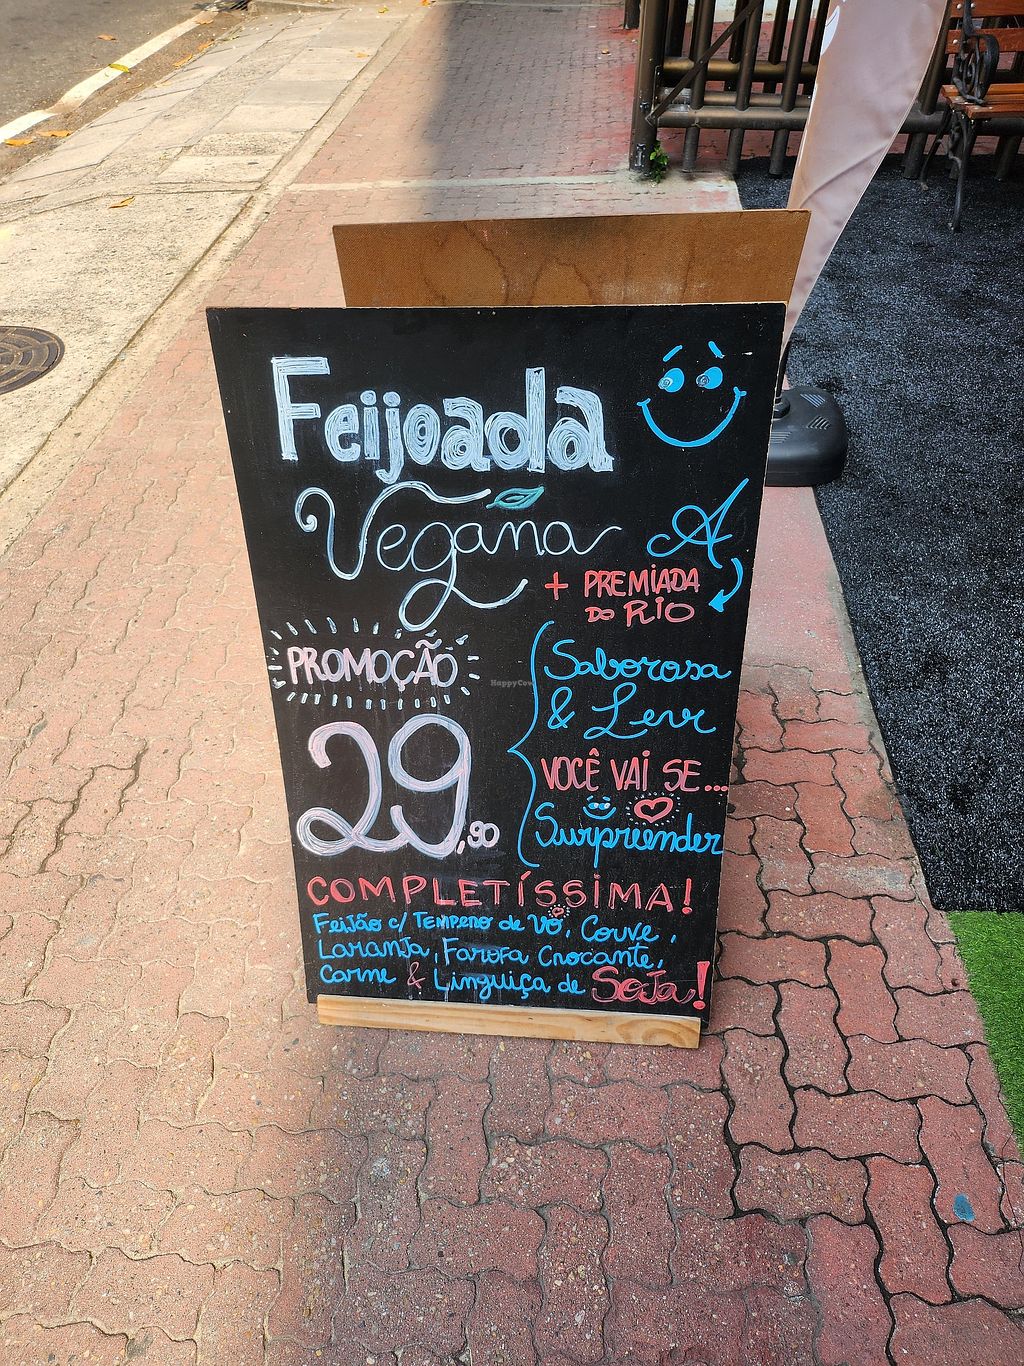 Feijoada
Vegana
A
+ PREMIADA
DO RIO
PROMOÇÃO
29,90
Saborosa
& Leve
VOCÊ VAI SE...
Surpreender
COMPLETÍSSIMA!
Feijão c/ Tempero de Vó, Couve,
Laranja, Farofa Crocante,
Carne & Linguiça de Soja!
HappyCow